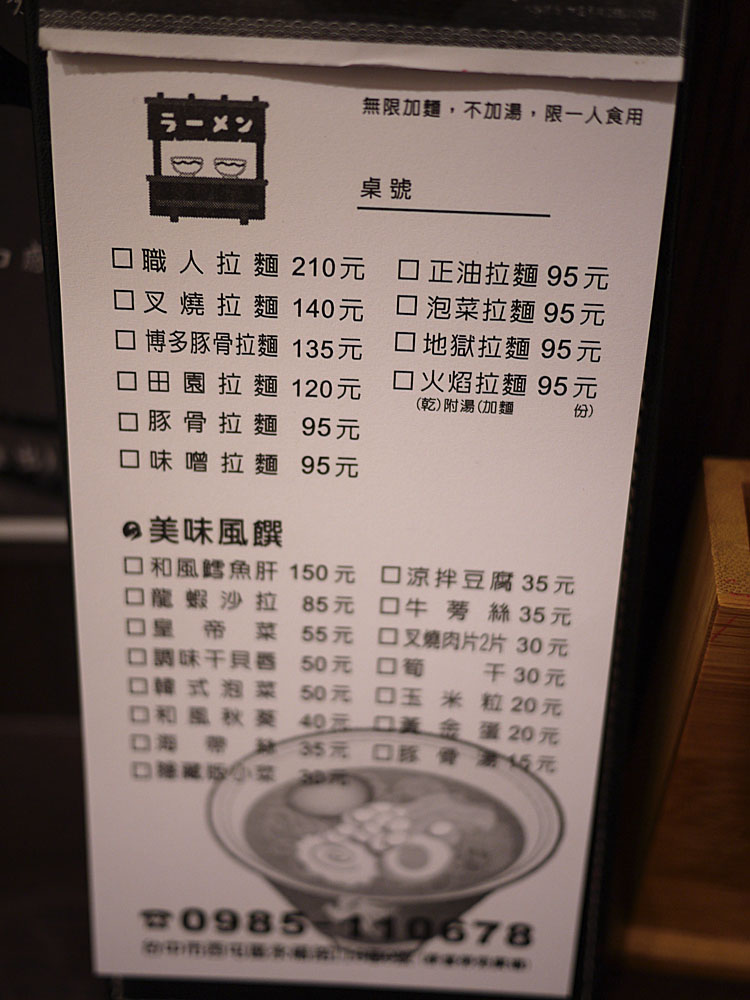 ラーメン
無限加麵，不加湯，限一人食用
桌號
□職人拉麵 210元
□叉燒拉麵 140元
□博多豚骨拉麵 135元
□田園拉麵 120元
□豚骨拉麵 95元
□味噌拉麵 95元
□正油拉麵 95元
□泡菜拉麵 95元
□地獄拉麵 95元
□火焰拉麵 95元
(乾)附湯(加麵 份)
美味風饌
□和風鱈魚肝 150元
□龍蝦沙拉 85元
□皇帝菜 55元
□調味干貝唇 50元
□韓式泡菜 50元
□和風秋葵 40元
□海帶絲 35元
□隱藏版小菜 30元
□涼拌豆腐 35元
□牛蒡絲 35元
□叉燒肉片2片 30元
□筍干 30元
□玉米粒 20元
□黃金蛋 20元
□豚骨湯 15元
☎0985-110678
台中市西屯區